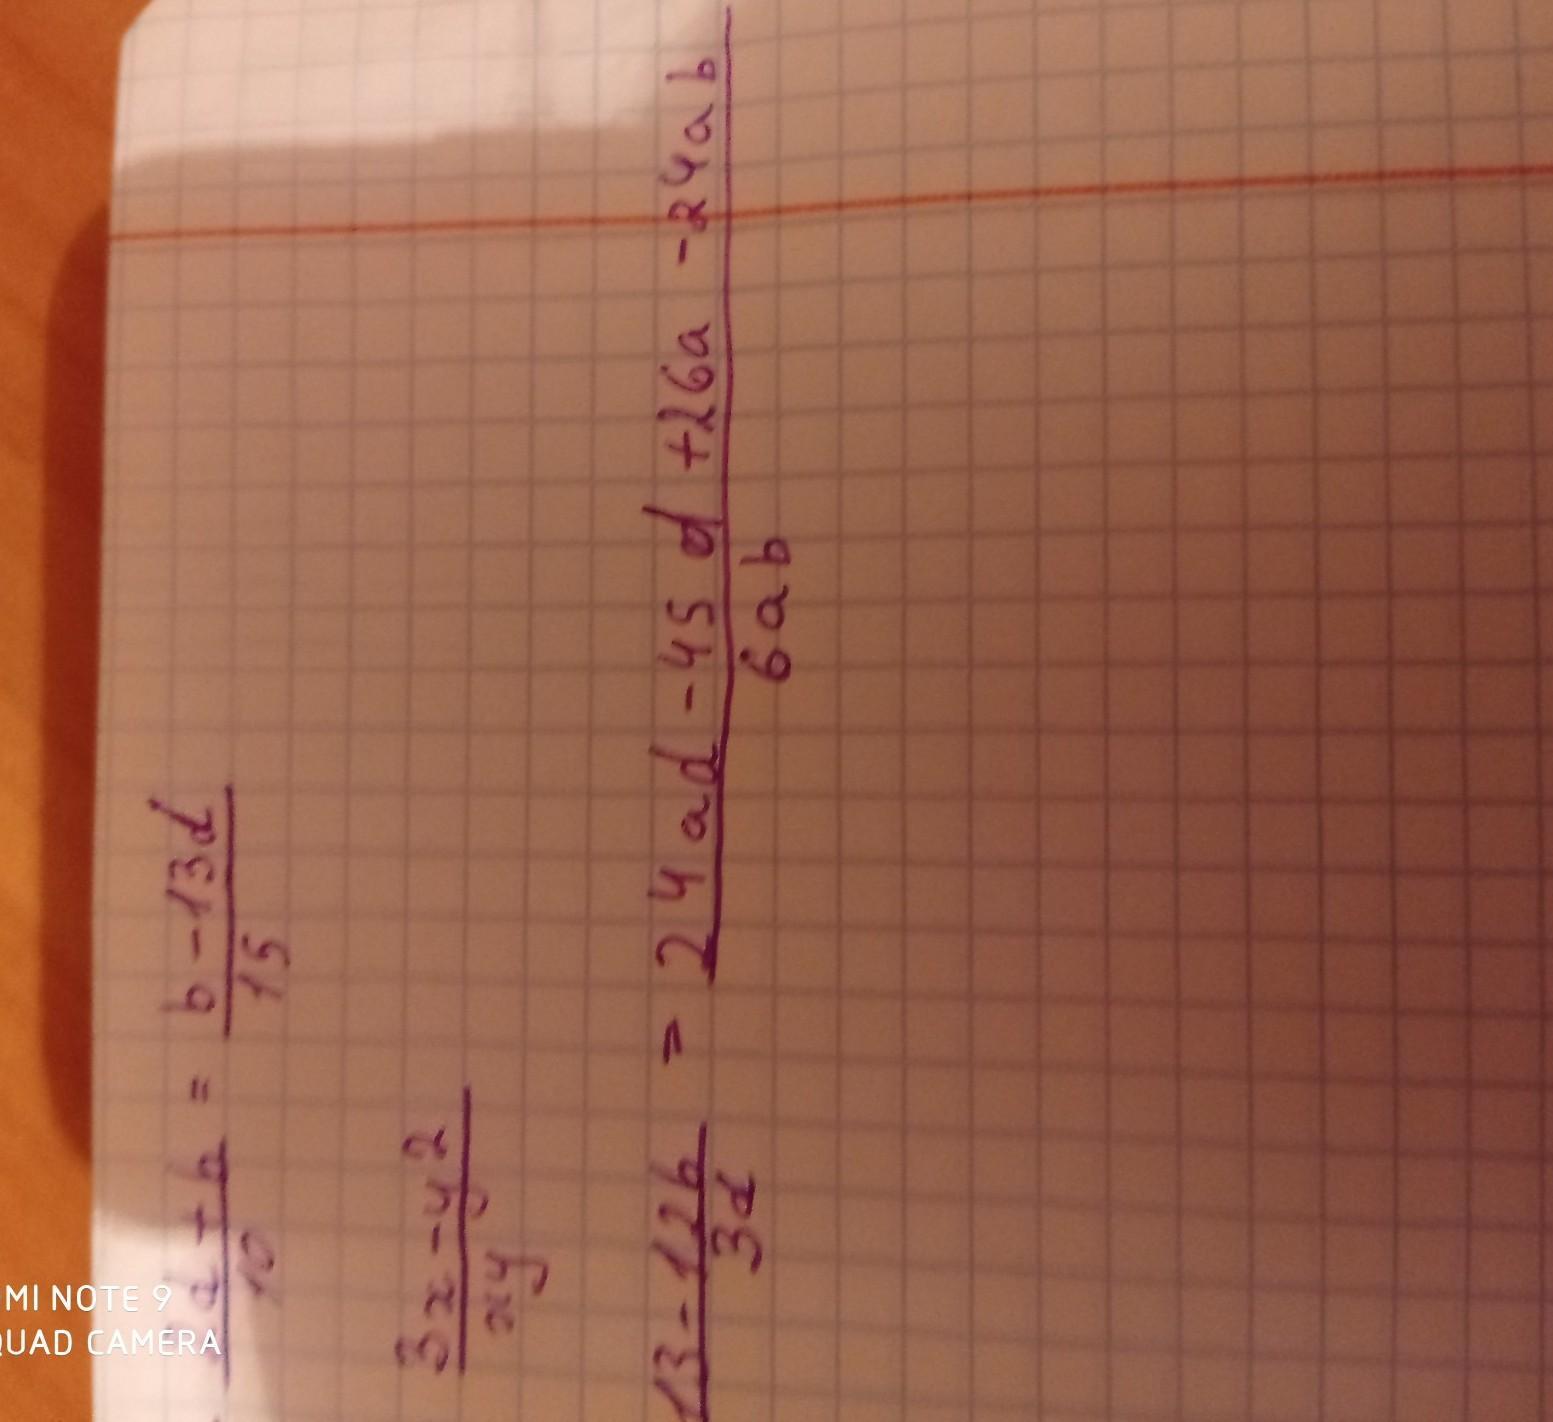 d + b = b - 13d
10 15
3x - y²
xy
13 - 12b = 24ad - 45d + 26a - 24ab
3d 6ab
MI NOTE 9
QUAD CAMERA